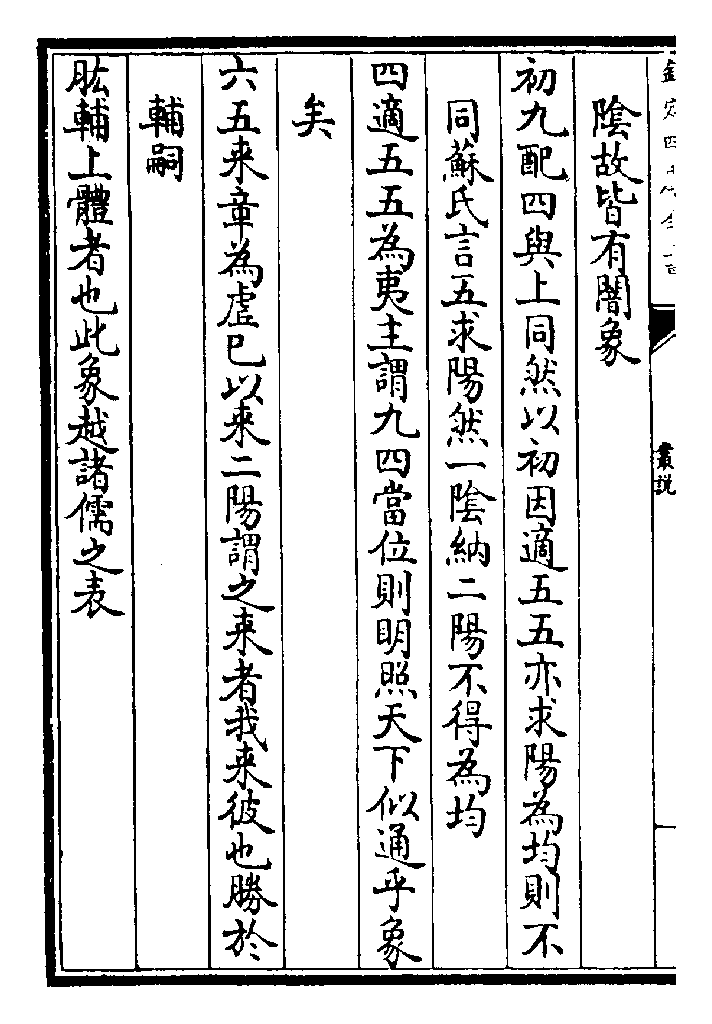 陰故皆有闇象
初九配四與上同然以初因適五五亦求陽為均則不
同蘇氏言五求陽然一陰納二陽不得為均
四適五五為夷主謂九四當位則明照天下似通乎象
矣
六五来章為虛已以来二陽謂之来者我来彼也勝於
輔嗣
肱輔上體者也此象越諸儒之表
叢説